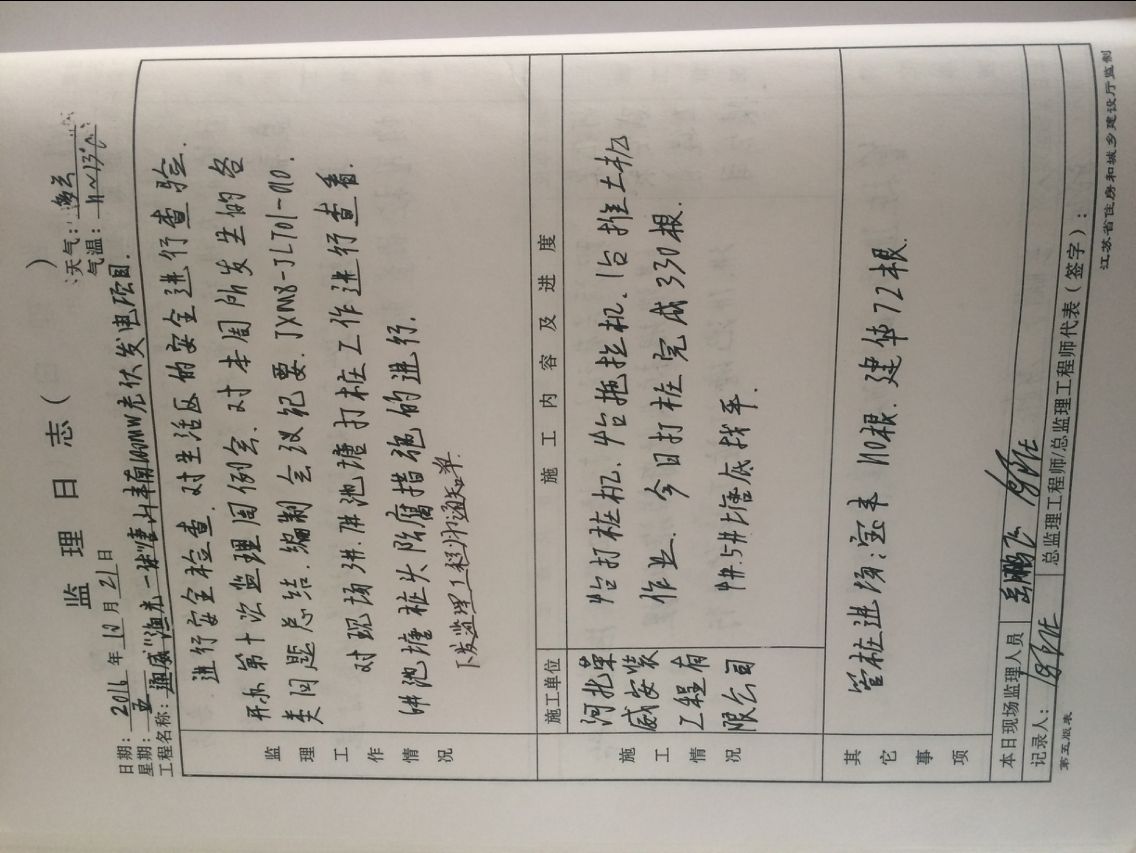 监理日志（ ）
日期：2016年10月21日 天气：多云
星期：五 气温：11~13℃
工程名称：通威"渔光一体"唐山丰南100MW光伏发电项目.
监理工作情况
进行安全检查.对生活区的安全进行查验.
开第十次监理周例会.对本周所发生的各
类问题总结.编制会议纪要.JXM8-JL701-010.
对现场3#.7#池塘打桩工作进行查看.
6#池塘桩头防腐措施的进行.
下发监理工程师通知单.
施工情况
施工单位 施工内容及进度
河北荣
威安装
工程有
限公司
4台打桩机.4台拖拉机.1台推土机
作业.今日打桩完成330根.
4#.5#塘底找平.
其它事项
管桩进场:宝丰110根.建华72根.
本日现场监理人员 岳鹏飞
记录人： 总监理工程师/总监理工程师代表（签字）：
第五版表 江苏省住房和城乡建设厅监制